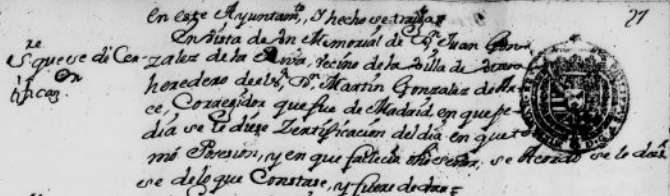 en este Ayuntamto, y hecho se trayga
27
Sre que se dé Cer-
tificazon
En Vista de Un Memorial de Dn Juan Gon-
zalez de la Riva, vecino de la Villa de
heredero del Sr Dn Martin Gonzalez de Ar-
ce, Corregidor que fue de Madrid, en que pe-
dia se le diese Zertificacion del dia en que to-
mó Posesion, y en que fallecio dho señor, se Acordó se le die-
se de lo que Constase, y fuere de dar=